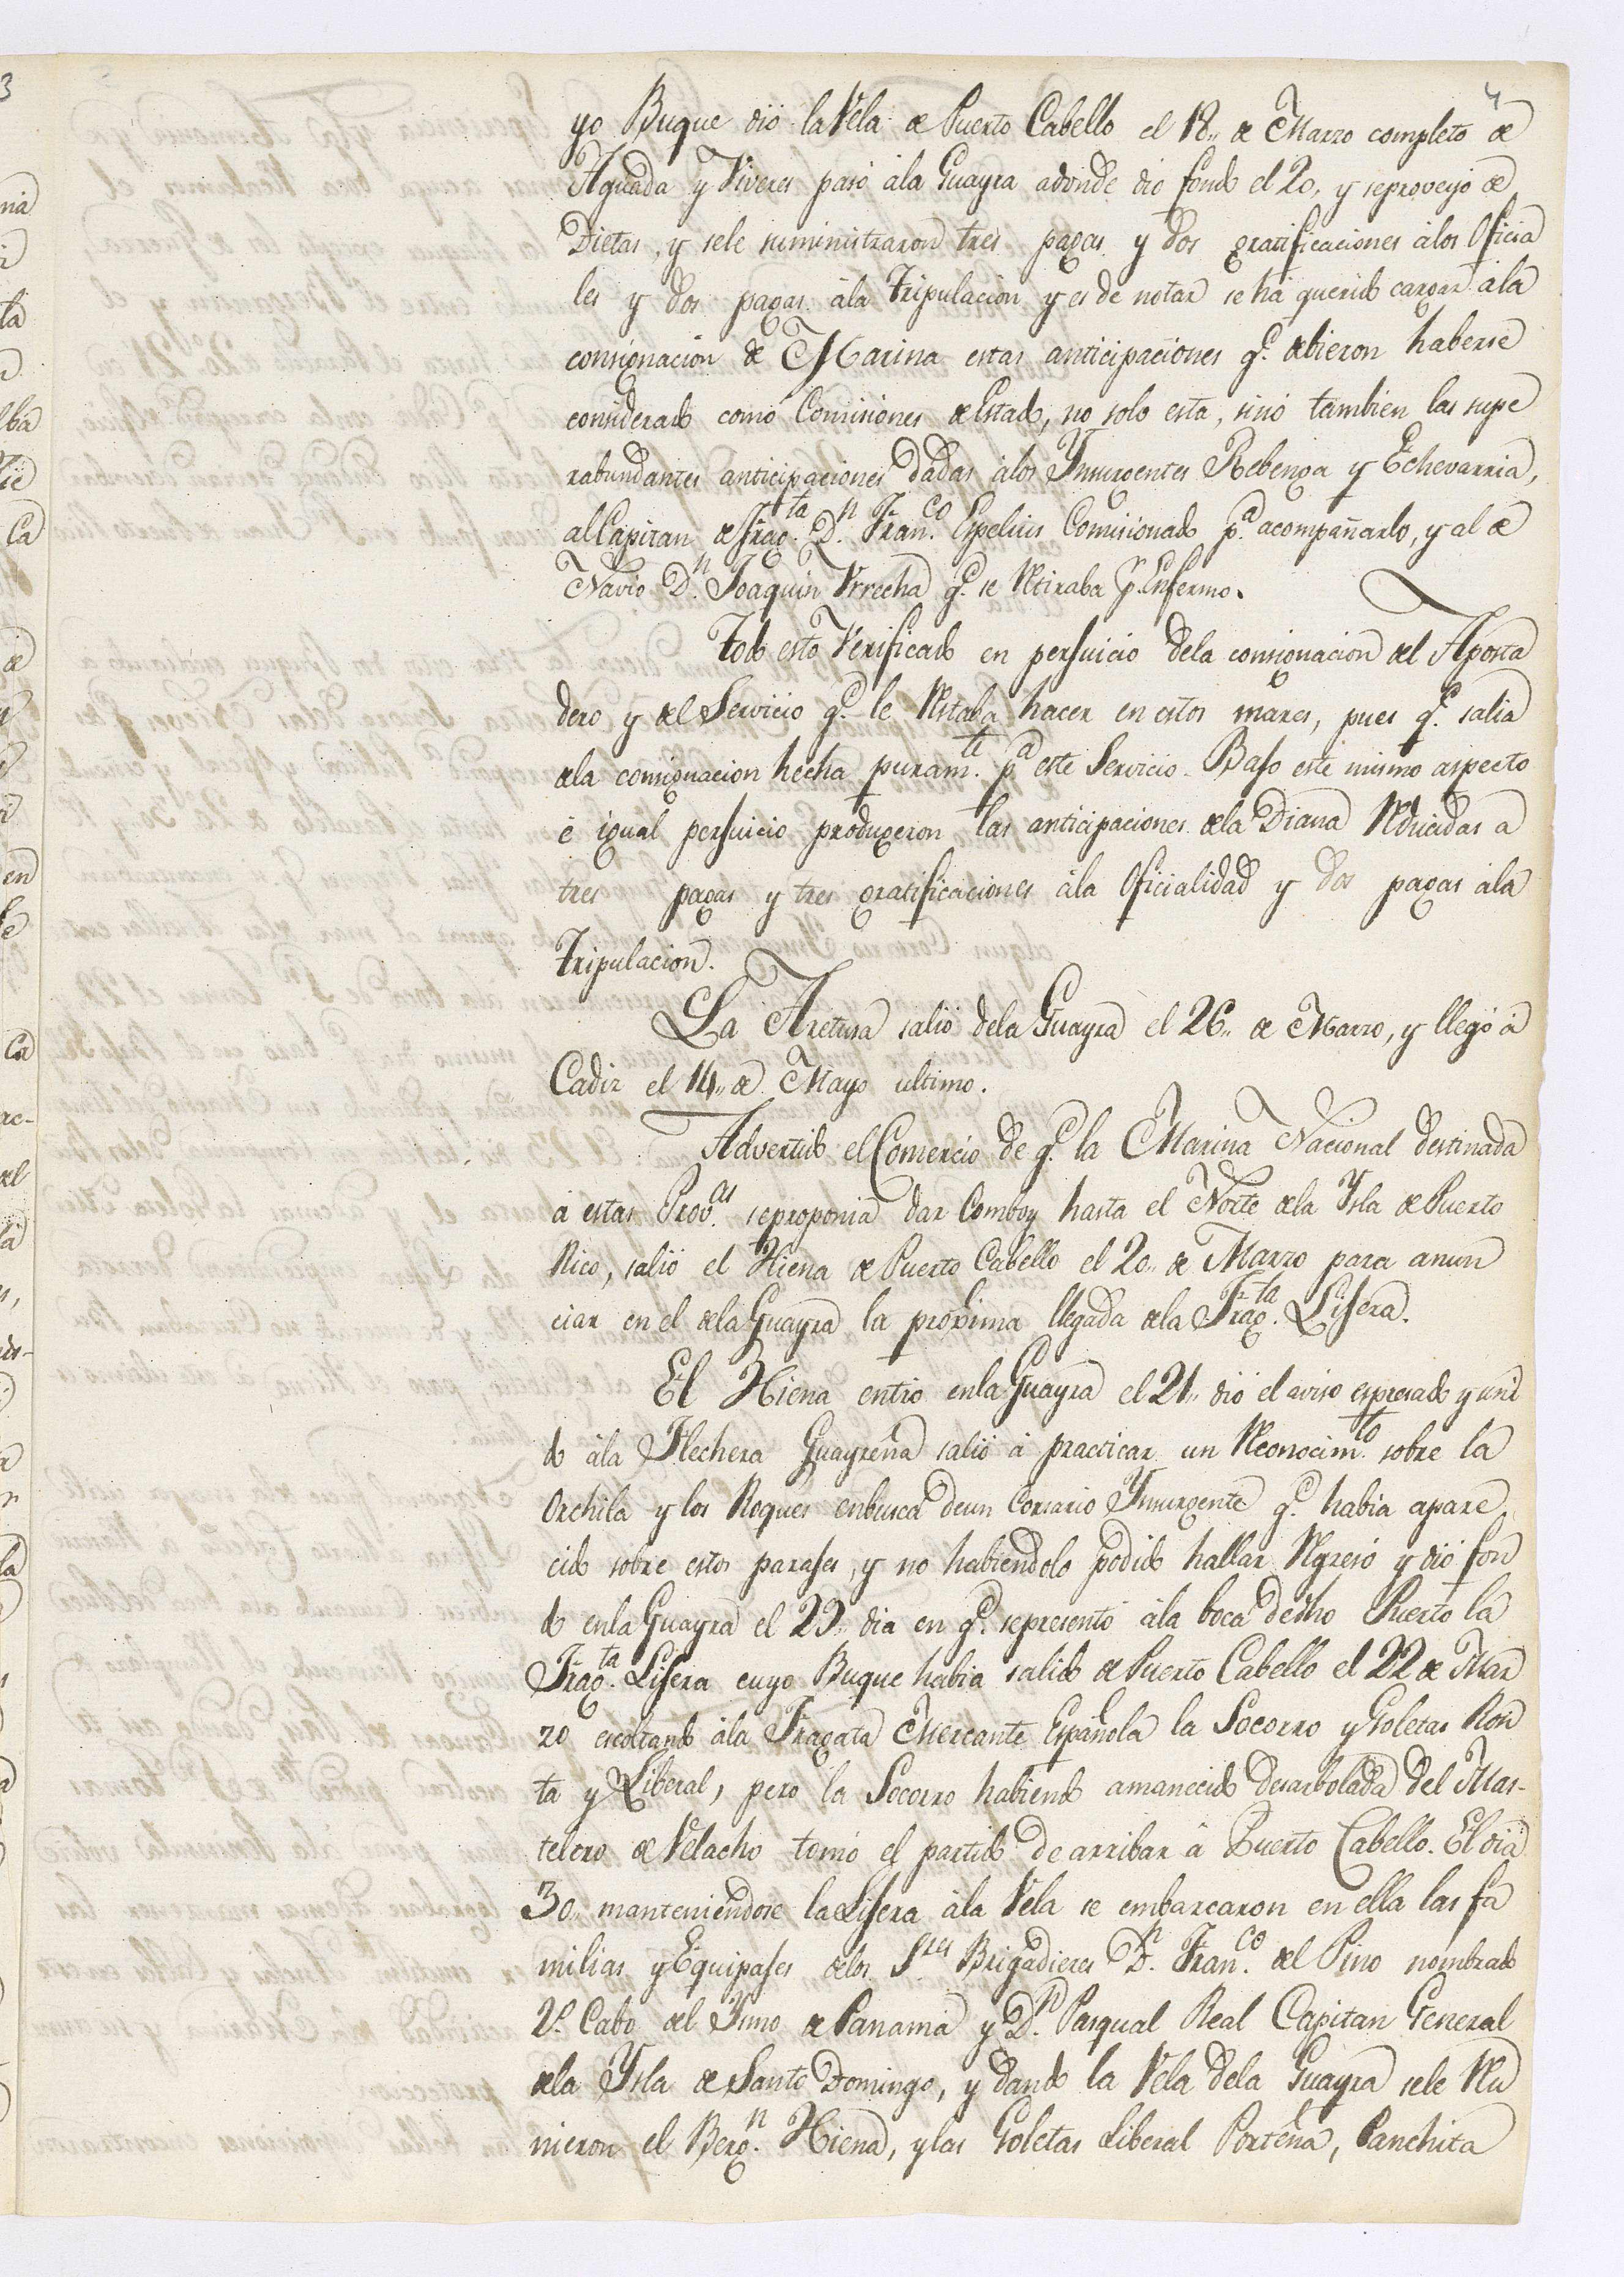 4
yo Buque dió la Vela de Puerto Cabello el 18,, de Marzo completo de
Aguada y Viveres pasó àla Guayra adonde dió fondo el 20, y seproveyó de
Dietas, y sele suministraron tres pagas y dos gratificaciones àlos Oficia
les y dos pagas àla Tripulacion y es de notar se há querido cargar àla
consignacion de Marina estas anticipaciones q.e debieron haberse
considerado como Comisiones de Estado, no solo esta, sinó tambien las supe
rabundantes anticipaciones dadas àlos Ynsurgentes Rebenga y Echevarria,
al Capitan de Frag.ta D.n Fran.co Espelius Comisionado p.a acompañarlo, y al de
Navio D.n Joaquin Vrrecha q.e se Retiraba p.r Enfermo.
Todo esto Verificado en perjuicio dela consignacion del Aposta
dero y del Servicio q.e le Restaba hacer en estos mares, pues q.e salia
dela consignacion hecha puram.te p.a este Servicio. Bajo este mismo aspecto
é igual perjuicio produxeron las anticipaciones dela Diana Reducidas a
tres pagas y tres gratificaciones àla Oficialidad y dos pagas àla
Tripulacion.
La Aretusa salió dela Guayra el 26,, de Marzo, y llegó á
Cadiz el 14,, de Mayo ultimo.
Advertido el Comercio de q.e la Marina Nacional destinada
à estas Prov.as seproponia dar Comboy hasta el Norte dela Ysla de Puerto
Rico, salió el Hiena de Puerto Cabello el 20,, de Marzo para anun
ciar en el dela Guayra la proxima llegada dela Frag.ta Lijera.
El Hiena entró enla Guayra el 21,, dió el aviso espresado y uni
do àla Flechera Guayreña salió á practicar un Reconocim.to sobre la
Orchila y los Roques enbusca deun Corsario Ynsurgente q.e habia apare
cido sobre estos parajes, y no habiendolo podido hallar Regresó y dió fon
do enla Guayra el 29,, dia en q.e sepresentó àla boca de dho Puerto la
Frag.ta Lijera cuyo Buque habia salido de Puerto Cabello el 22 de Mar
zo escoltando àla Fragata Mercante Española la Socorro y Goletas Ron
ta y Liberal, pero la Socorro habiendo amanecido desarbolada del Mas-
telero de Velacho tomó el partido de arribar à Puerto Cabello. El dia
30,, manteniendose la Lijera àla Vela se embarcaron en ella las fa
milias y Equipajes delos S.res Brigadieres D.n Fran.co del Pino nombrado
2.o Cabo del Ysmo de Panamá y D.n Pasqual Real Capitan General
dela Ysla de Santo Domingo, y dando la Vela dela Guayra sele Reu
nieron el Berg.n Hiena, y las Goletas Liberal Porteña, Panchita